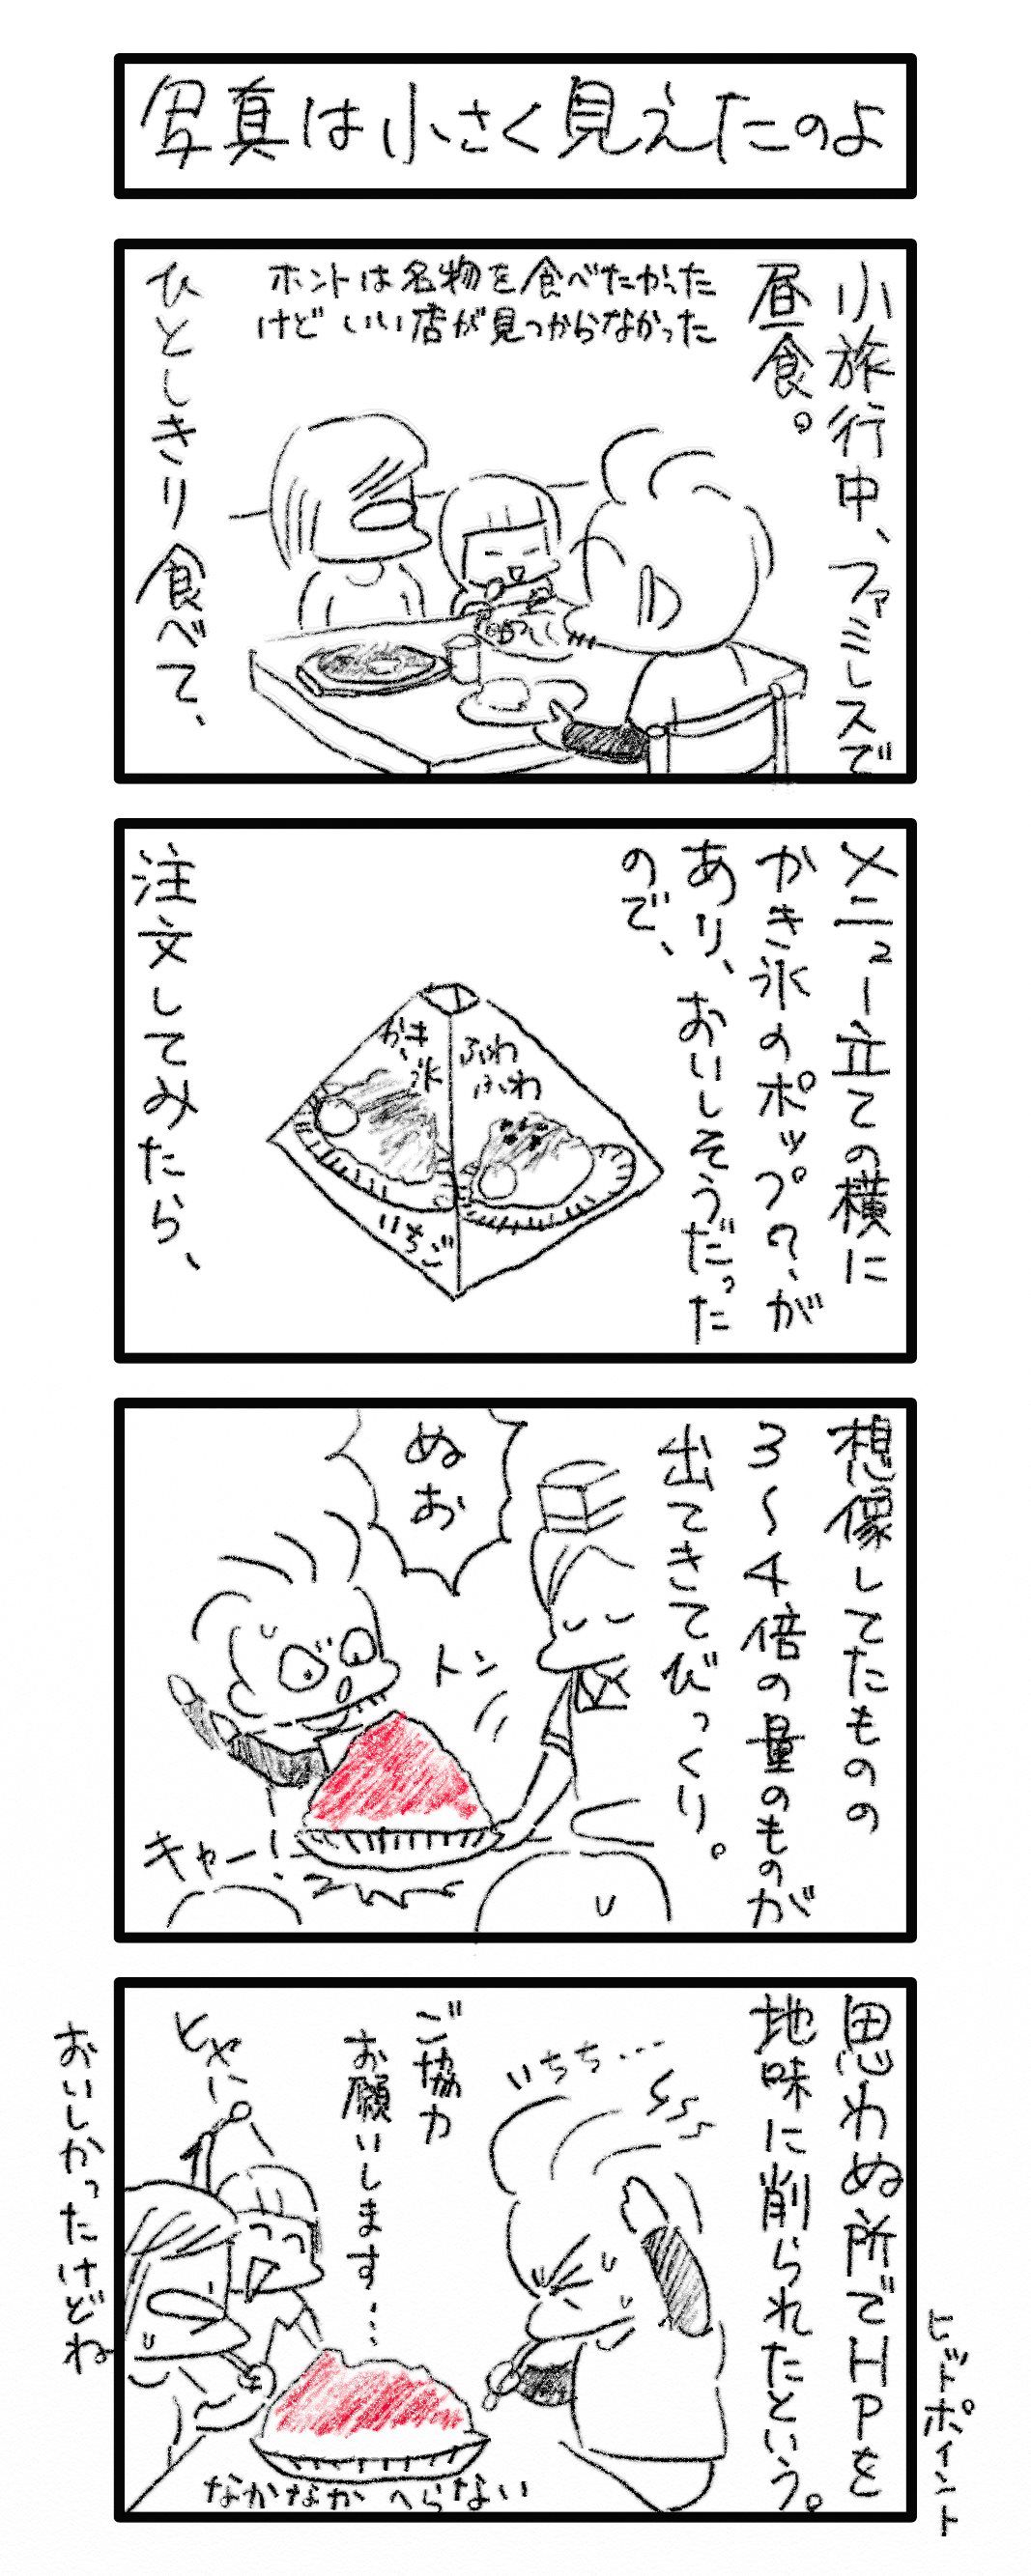 写真は小さく見えたのよ
小旅行中、ファミレスで
昼食。
ホントは名物を食べたかった
けど いい店が見つからなかった
ひとしきり食べて、
メニュー立ての横に
かき氷のポップ?が
あり、おいしそうだった
ので、
ふわ
ふわ
かき
氷
いちご
注文してみたら、
想像してたものの
3〜4倍の量のものが
出てきてびっくり。
ぬお
トン
キャー!
思わぬ所でHPを
ヒットポイント
地味に削られたという。
いちち…
ご協力
お願いします…
ヒャに
なかなかへらない
おいしかったけどね